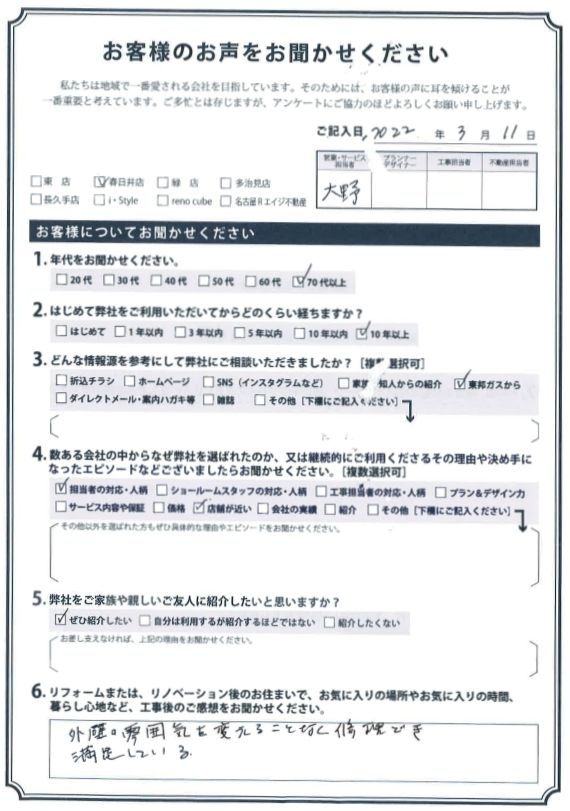 お客様のお声をお聞かせください
私たちは地域で一番愛される会社を目指しています。そのためには、お客様の声に耳を傾けることが
一番重要と考えています。ご多忙とは存じますが、アンケートにご協力のほどよろしくお願い申し上げます。
ご記入日 2022 年 3 月 11 日
営業・サービス担当者 プランナーデザイナー 工事担当者 不動産担当者
大野
□東 店 ☑春日井店 □緑 店 □多治見店
□長久手店 □i・Style □reno cube □名古屋Rエイジ不動産
お客様についてお聞かせください
1. 年代をお聞かせください。
□20代 □30代 □40代 □50代 □60代 ☑70代以上
2. はじめて弊社をご利用いただいてからどのくらい経ちますか?
□はじめて □1年以内 □3年以内 □5年以内 □10年以内 ☑10年以上
3. どんな情報源を参考にして弊社にご相談いただきましたか?[複数選択可]
□折込チラシ □ホームページ □SNS(インスタグラムなど) □家族 知人からの紹介 ☑東邦ガスから
□ダイレクトメール・案内ハガキ等 □雑誌 □その他[下欄にご記入ください]
4. 数ある会社の中からなぜ弊社を選ばれたのか、又は継続的にご利用くださるその理由や決め手に
なったエピソードなどございましたらお聞かせください。[複数選択可]
☑担当者の対応・人柄 □ショールームスタッフの対応・人柄 □工事担当者の対応・人柄 □プラン&デザイン力
□サービス内容や保証 □価格 ☑店舗が近い □会社の実績 □紹介 □その他[下欄にご記入ください]
その他以外を選ばれた方もぜひ具体的な理由やエピソードをお聞かせください。
5. 弊社をご家族や親しいご友人に紹介したいと思いますか?
☑ぜひ紹介したい □自分は利用するが紹介するほどではない □紹介したくない
お差し支えなければ、上記の理由をお聞かせください。
6. リフォームまたは、リノベーション後のお住まいで、お気に入りの場所やお気に入りの時間、
暮らし心地など、工事後のご感想をお聞かせください。
外壁の雰囲気を変えることなく修理でき
満足している。